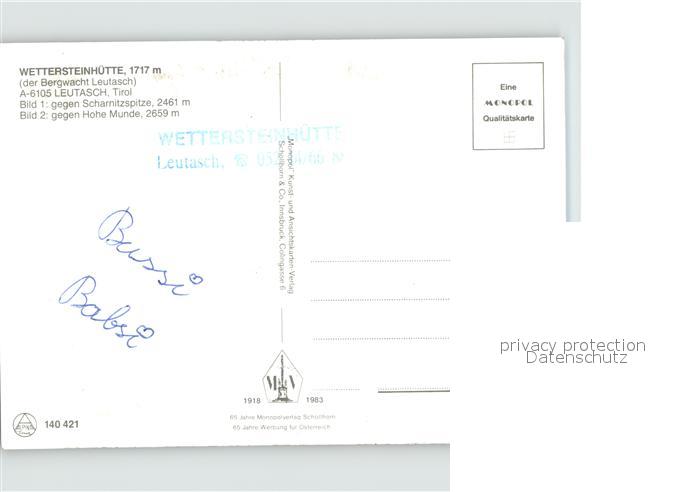 WETTERSTEINHÜTTE, 1717 m
(der Bergwacht Leutasch)
A-6105 LEUTASCH, Tirol
Bild 1: gegen Scharnitzspitze, 2461 m
Bild 2: gegen Hohe Munde, 2659 m
WETTERSTEINHÜTTE
Leutasch,
Eine
MONOPOL
Qualitätskarte
„Monopol" Kunst- und Ansichtskarten-Verlag
Schöllhorn & Co., Innsbruck, Colingasse 6
Bussi
Babsi
privacy protection
Datenschutz
1918
1983
65 Jahre Monopolverlag Schöllhorn
65 Jahre Werbung für Österreich
140 421